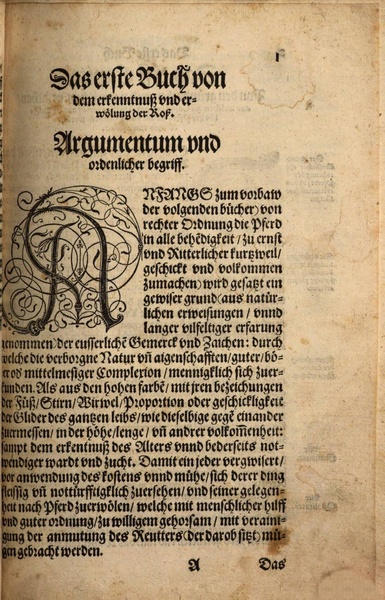 1
Das erste Buch von
dem erkenntnuß vnd er-
wölung der Roß.
Argumentum vnd
ordenlicher begriff.
ANFANGS zum vorbaw
der volgenden bücher/ von
rechter Ordnung die Pferd
in alle behēdigkeit/ zu ernst
vnd Ritterlicher kurtzweil/
geschickt vnd volkommen
zumachen/ wird gesatzt ein
gewiser grund/ aus natür-
lichen erweisungen/ vnnd
langer vilfeltiger erfarung
genommen/ der eusserlichē Gemerck vnd Zaichen: durch
welche die verborgne Natur vñ aigenschafften/ guter/ bö-
er od mittelmesiger Complexion/ mennigklich sich zuer-
kunden. Als aus den hohen farbē/ mit jren bezeichnungen
der Füß/ Stirn/ Wirwel/ Proportion oder geschickligkeit
der Glider des gantzen leibs/ wie dieselbige gegē einander
zuermessen/ in der höhe/ lenge/ vñ andrer volkom̃enheit:
sampt dem erkentnuß des Alters vnnd bederseits not-
wendiger wardt vnd zucht. Damit ein jeder vergwisert/
vor anwendung des kostens vnnd mühe/ sich derer ding
fleissig vñ nottürfftigklich zuersehen/ vnd seiner gelegen-
heit nach Pferd zuerwölen/ welche mit menschlicher hilff
vnd guter ordnung/ zu willigem gehorsam/ mit veraini-
gung der anmutung des Reutters (der darob sitzt) mü-
gen gebracht werden.
A Das